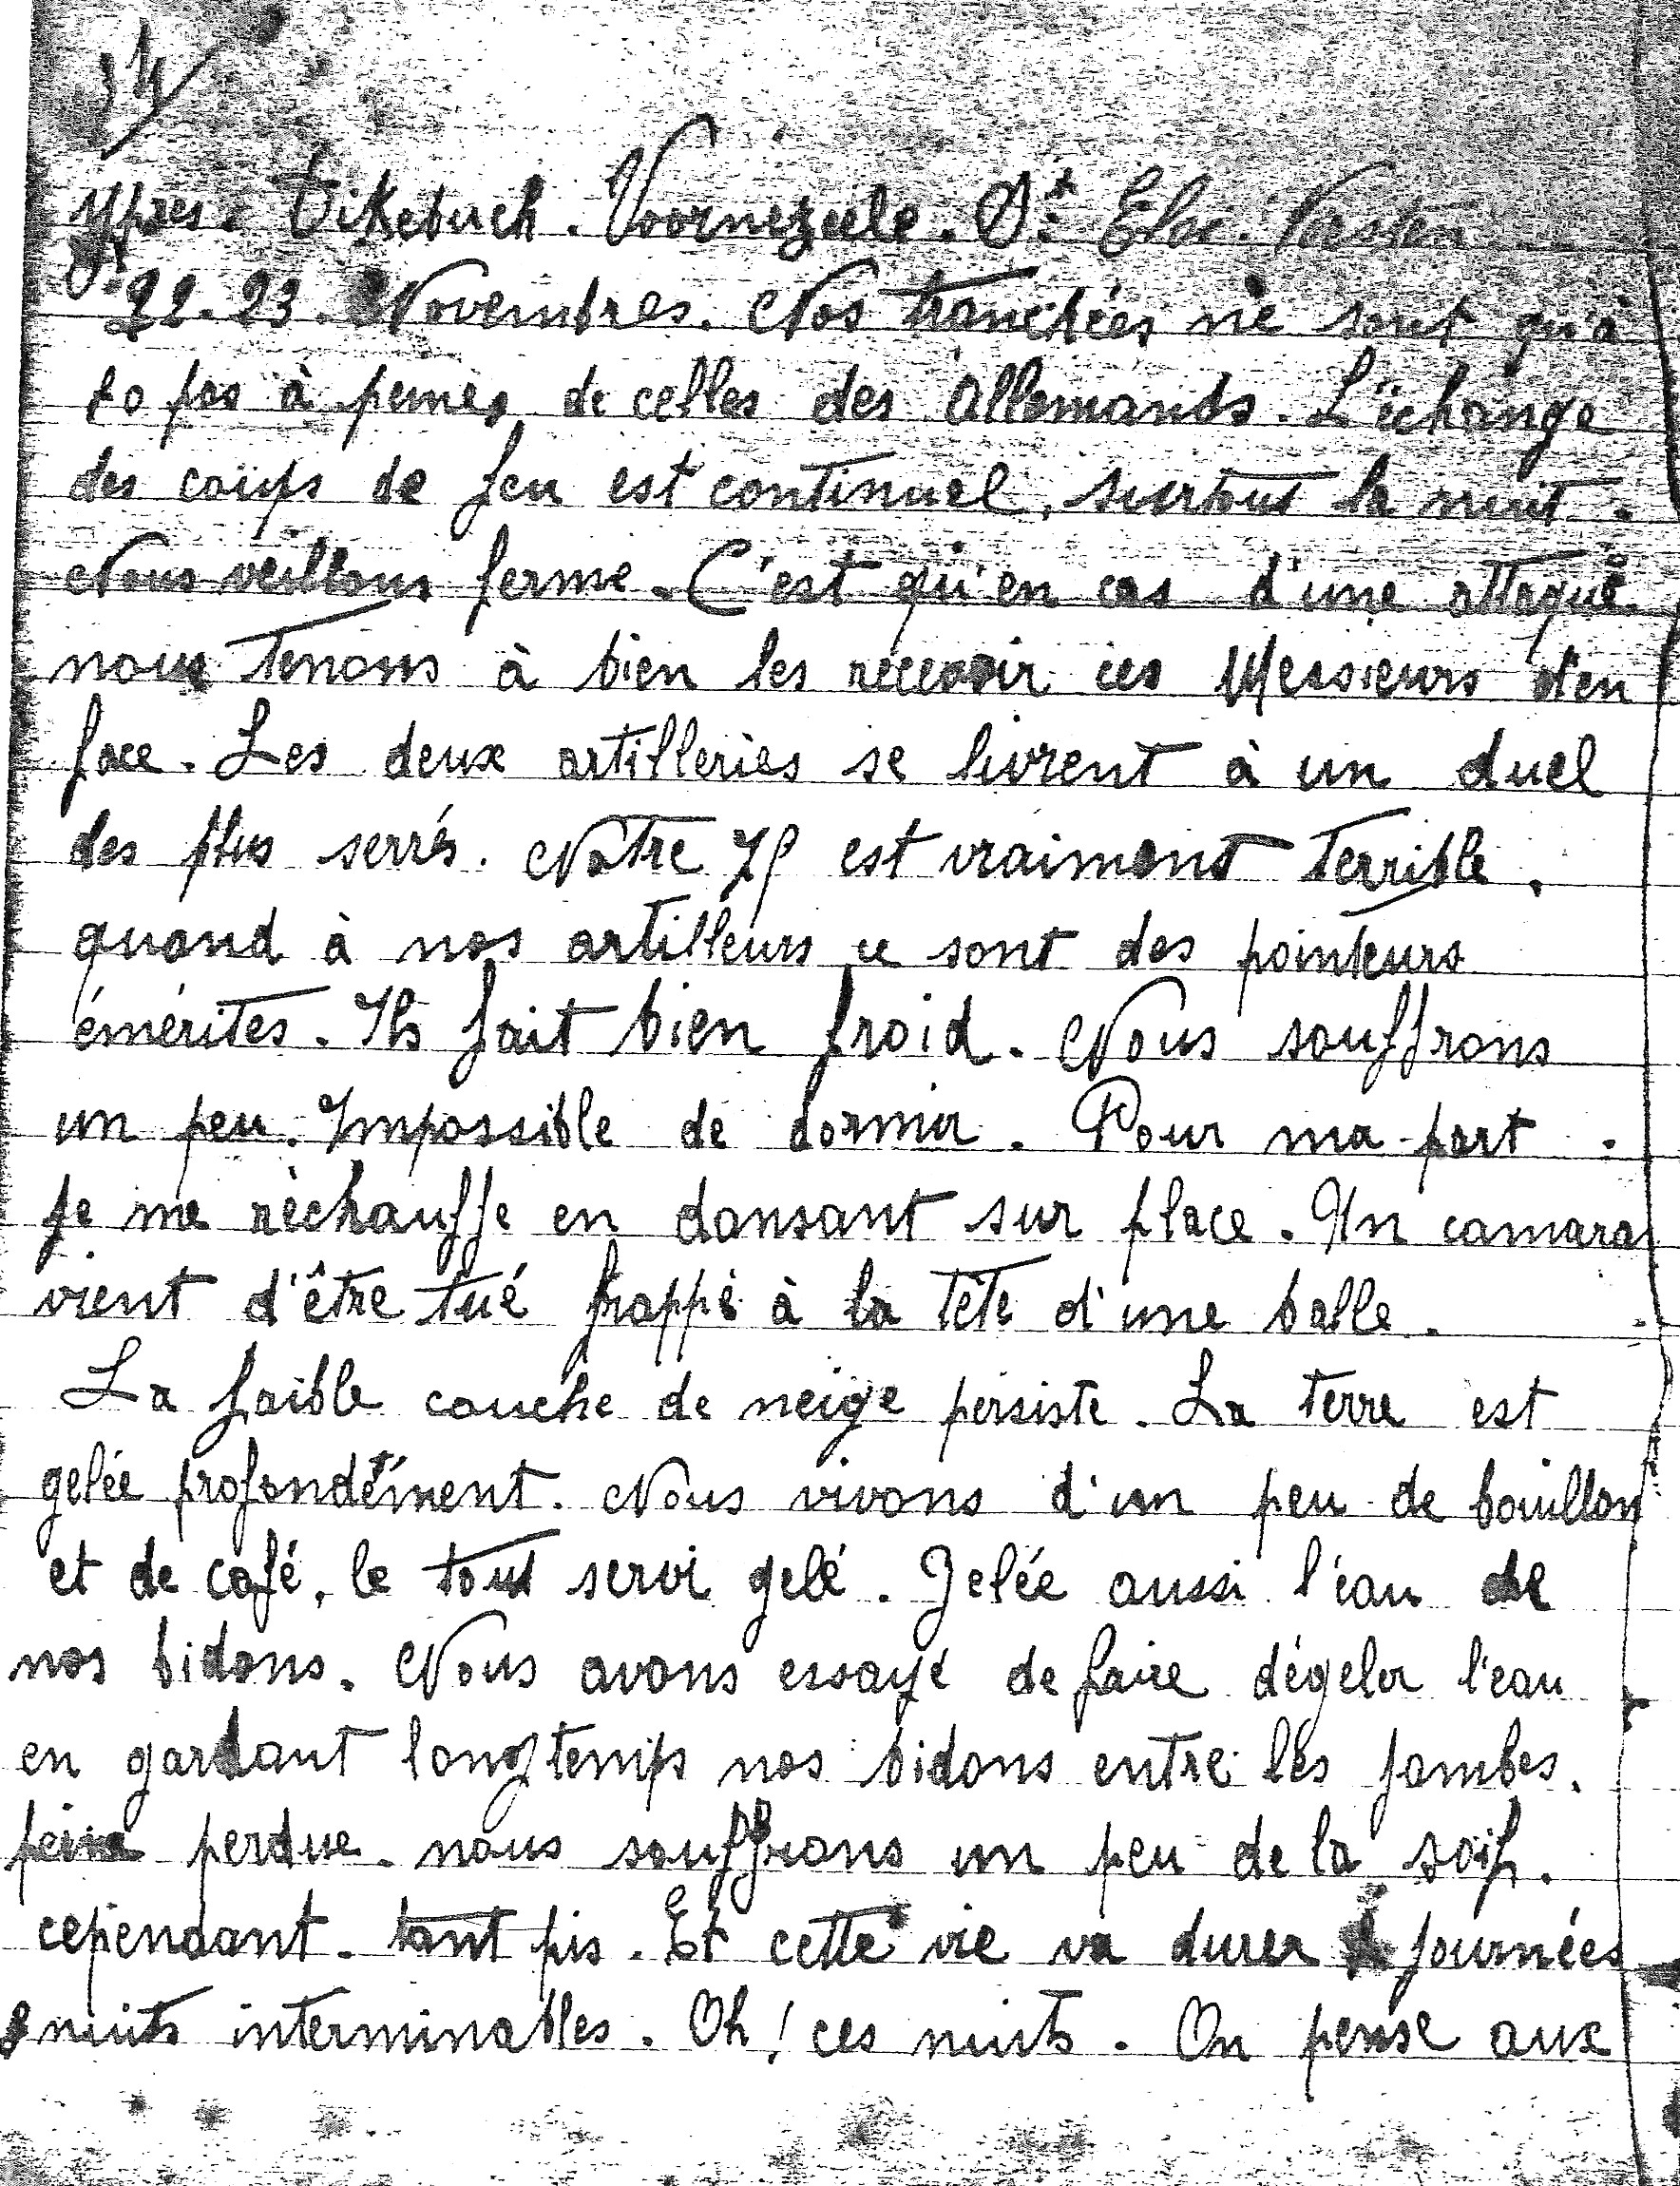 34
Ypres. Dikebuch. Voornezeele. St Eloi.
22.23. Novembres. Nos tranchées ne sont qu'à
80 pas à peines de celles des Allemands. L'échange
des coups de feu est continuel, surtout la nuit.
Nous veillons ferme. C'est qu'en cas d'une attaque
nous tenons à bien les recevoir ces Messieurs d'en
face. Les deux artilleries se livrent à un duel
des plus serrés. Notre 75 est vraiment terrible.
quand à nos artilleurs ce sont des pointeurs
émérites. Ils fait bien froid. Nous souffrons
un peu. Impossible de dormir. Pour ma part.
je me réchauffe en dansant sur place. Un camara
vient d'être tué frappé à la tête d'une balle.
La faible couche de neige persiste. La terre est
gelée profondément. Nous vivons d'un peu de bouillon
et de café, le tout servi gelé. Gelée aussi l'eau de
nos bidons. Nous avons essayé de faire dégeler l'eau
en gardant longtemps nos bidons entre les jambes.
peine perdue. nous souffrons un peu de la soif.
cependant. tant pis. Et cette vie va durer journées
nuits interminables. Oh! ces nuits. On pense aux